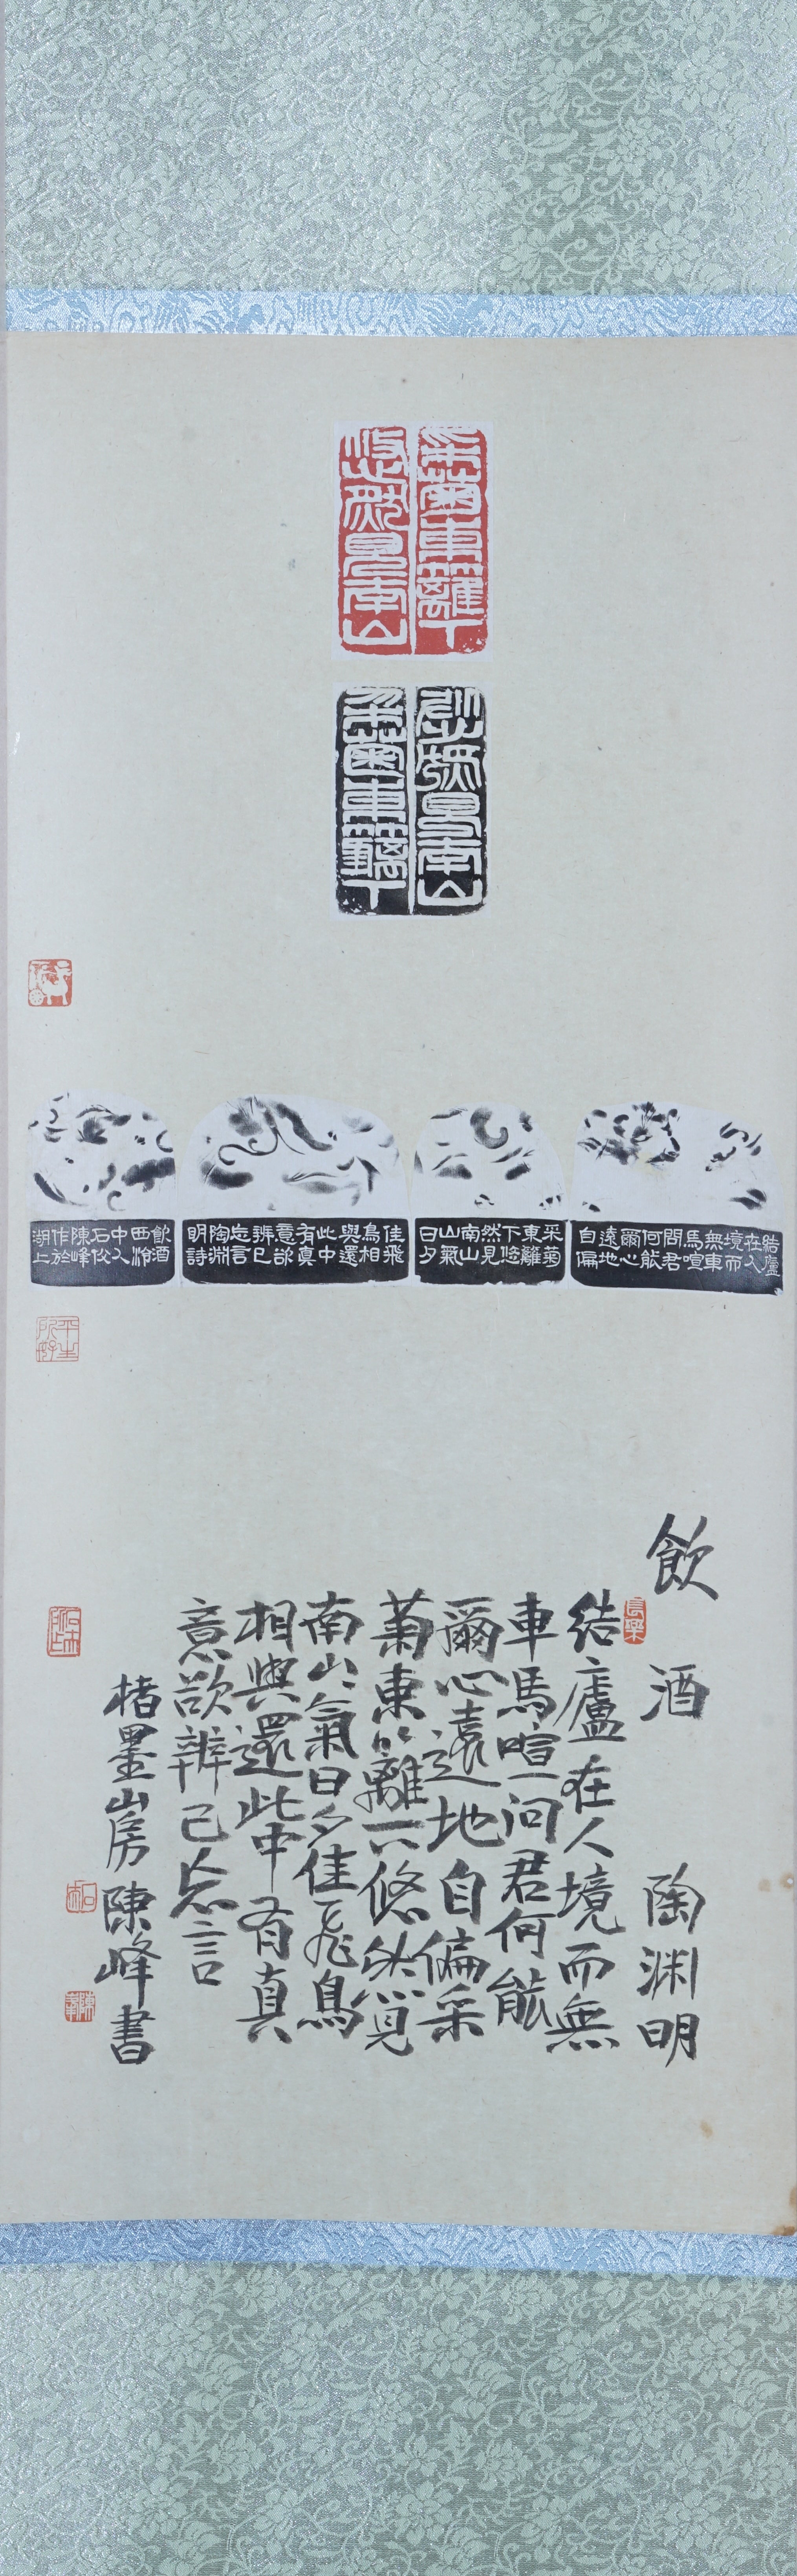 采菊東籬下
悠然見南山
悠然見南山
采菊東籬下
結廬
在人
境而
無車
馬喧
問君
何能
爾心
遠地
自偏
采菊
東籬
下悠
然見
南山
山氣
日夕
佳飛
鳥相
與還
此中
有真
意欲
辨已
忘言
陶淵
明詩
飲酒
西泠
中人
石
陳峰
作於
湖上
平生所好
飲酒 陶淵明
長樂
結廬在人境而無
車馬喧問君何能
爾心遠地自偏采
菊東籬下悠然見
南山々氣日夕佳飛鳥
相與還此中有真
意欲辨已忘言
楮墨山房陳峰書
陳峰